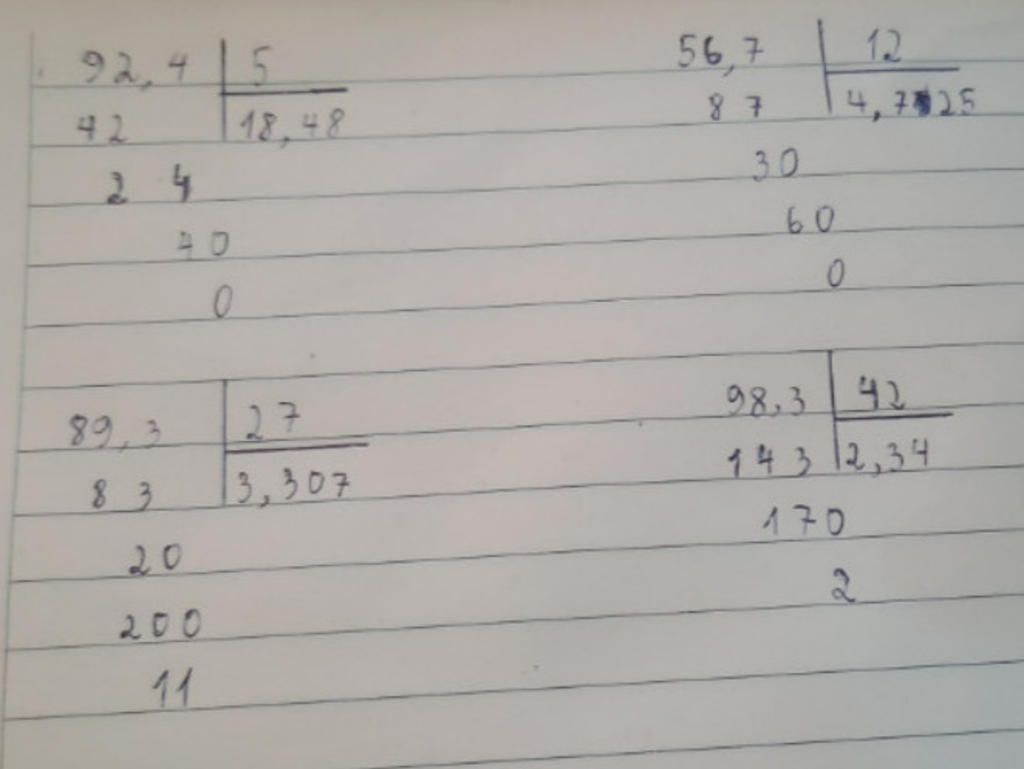 92,4 5
42 18,48
2 4
40
0
56,7 12
87 4,725
30
60
0
89,3 27
83 3,307
20
200
11
98,3 42
143 2,34
170
2